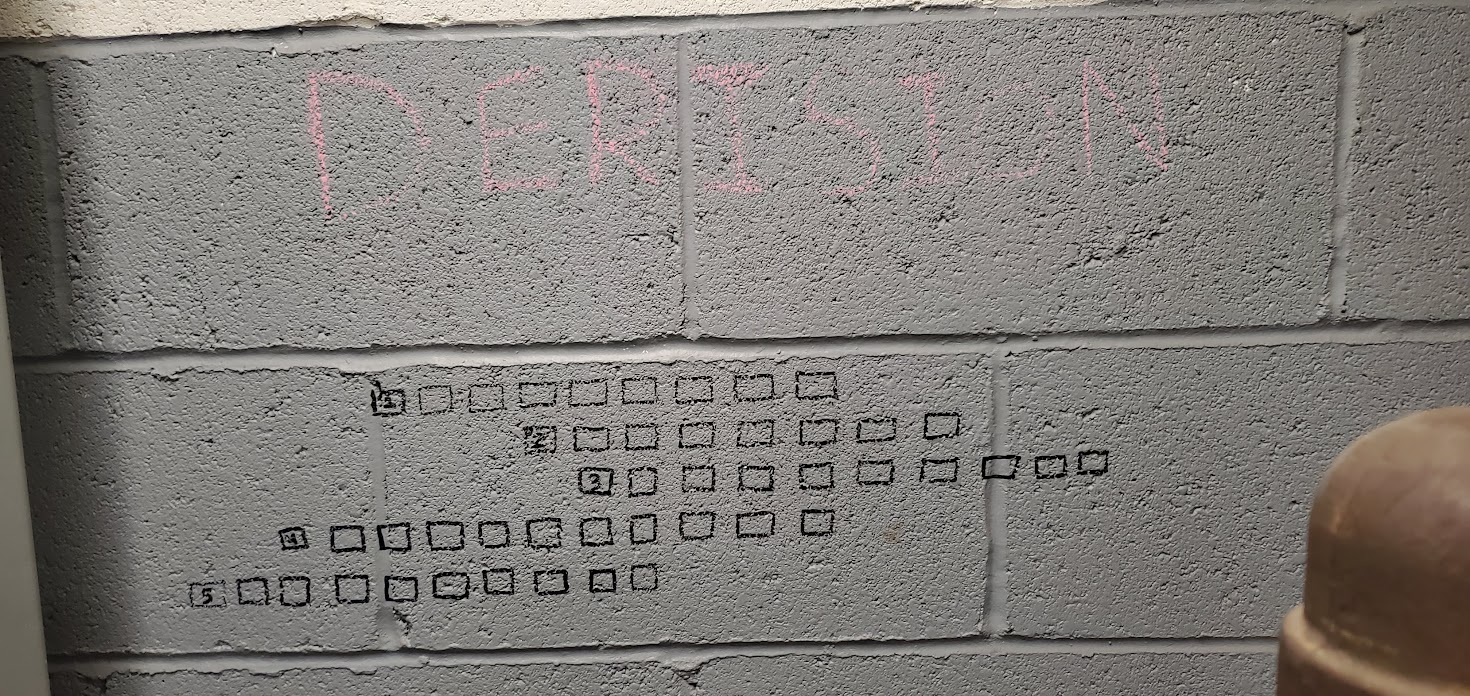 DERISION
1
2
3
4
5